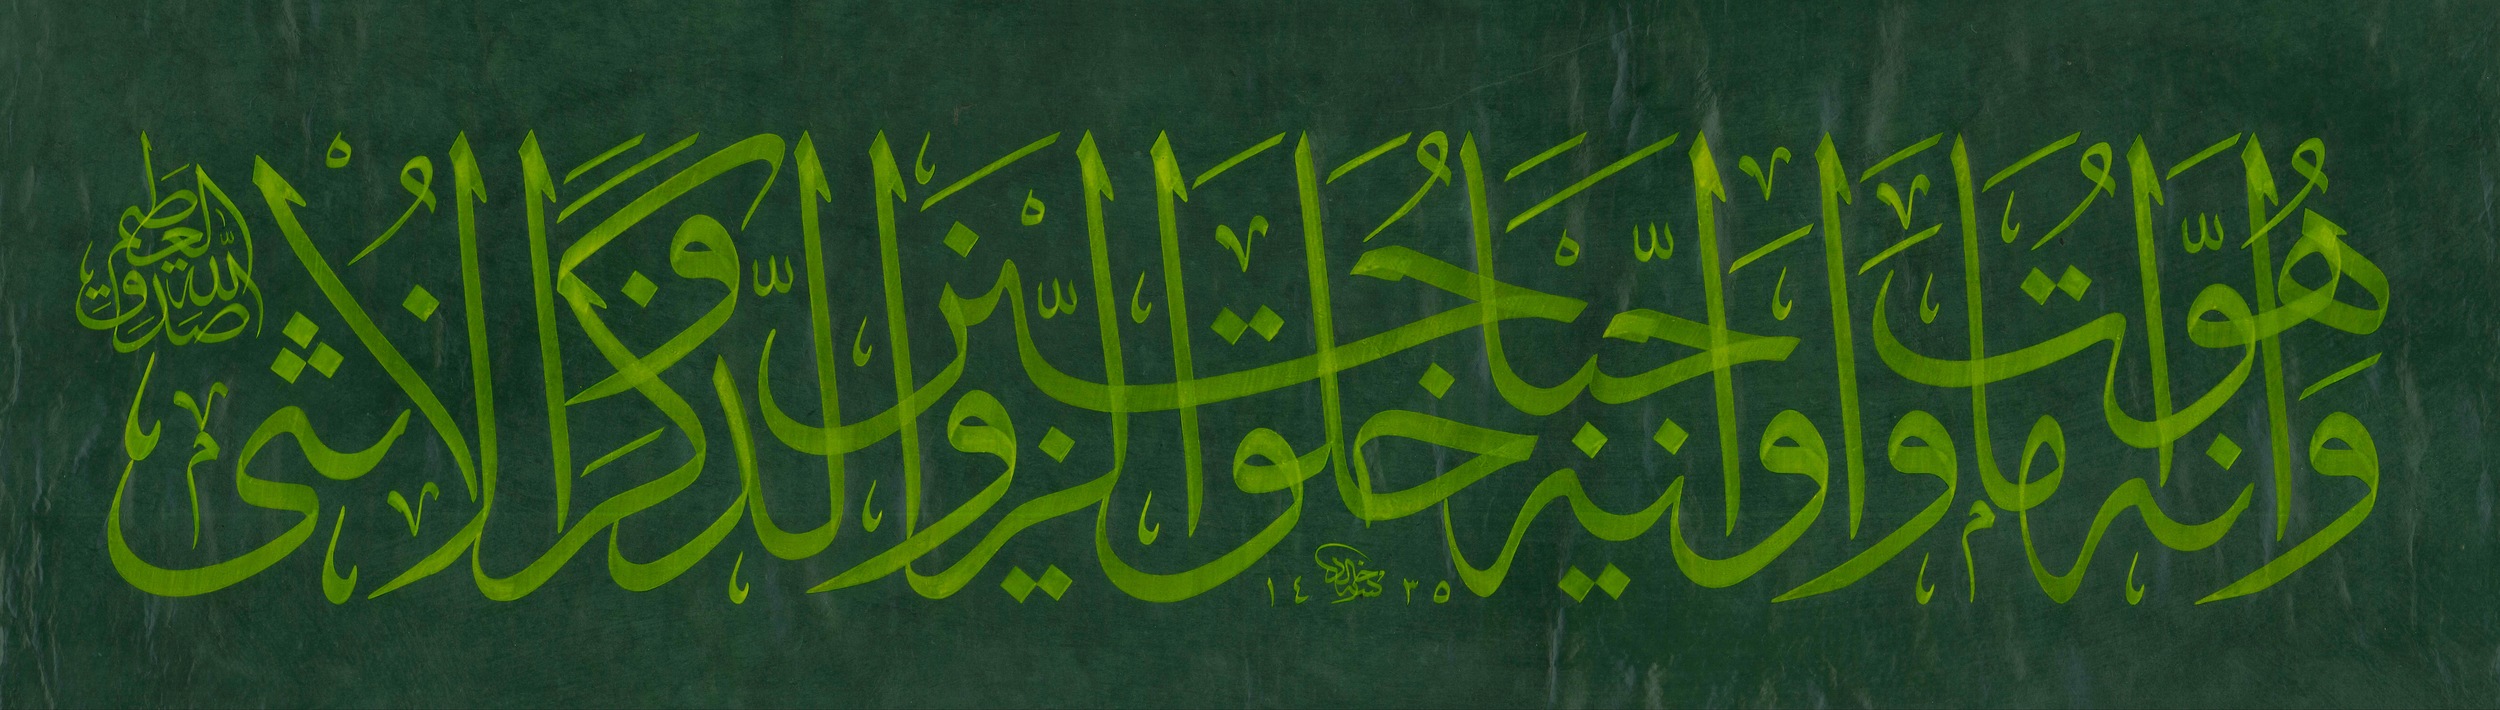 وَأَنَّهُ هُوَ أَمَاتَ وَأَحْيَا وَأَنَّهُ خَلَقَ الزَّوْجَيْنِ الذَّكَرَ وَالْأُنْثَى
صدق الله العظيم
١٤٣٥